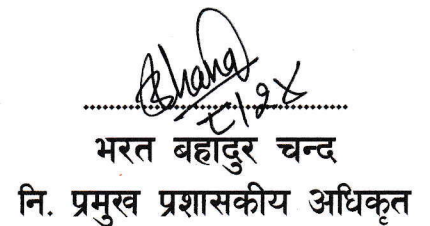 भरत बहादुर चन्द
नि. प्रमुख प्रशासकीय अधिकृत